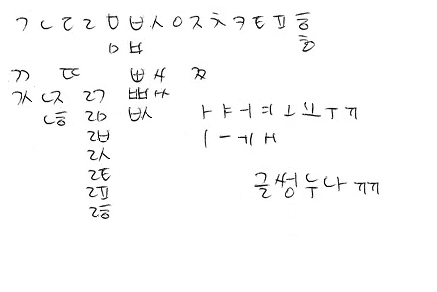 ㄱ ㄴ ㄷ ㄹ ㅁ ㅂ ㅅ ㅇ ㅈ ㅊ ㅋ ㅌ ㅍ ㅎ
ㅁ ㅂ ㅎ
ㄲ ㄸ ㅃ ㅆ ㅉ
ㄳ ㄵ ㄺ ㅃ ㅆ
ㄶ ㄻ ㅄ
ㄼ
ㄽ
ㄾ
ㄿ
ㅀ
ㅏ ㅑ ㅓ ㅕ ㅗ ㅛ ㅜ ㅠ
ㅣ ㅡ ㅔ ㅐ
글씽누나 ㄲㄲ